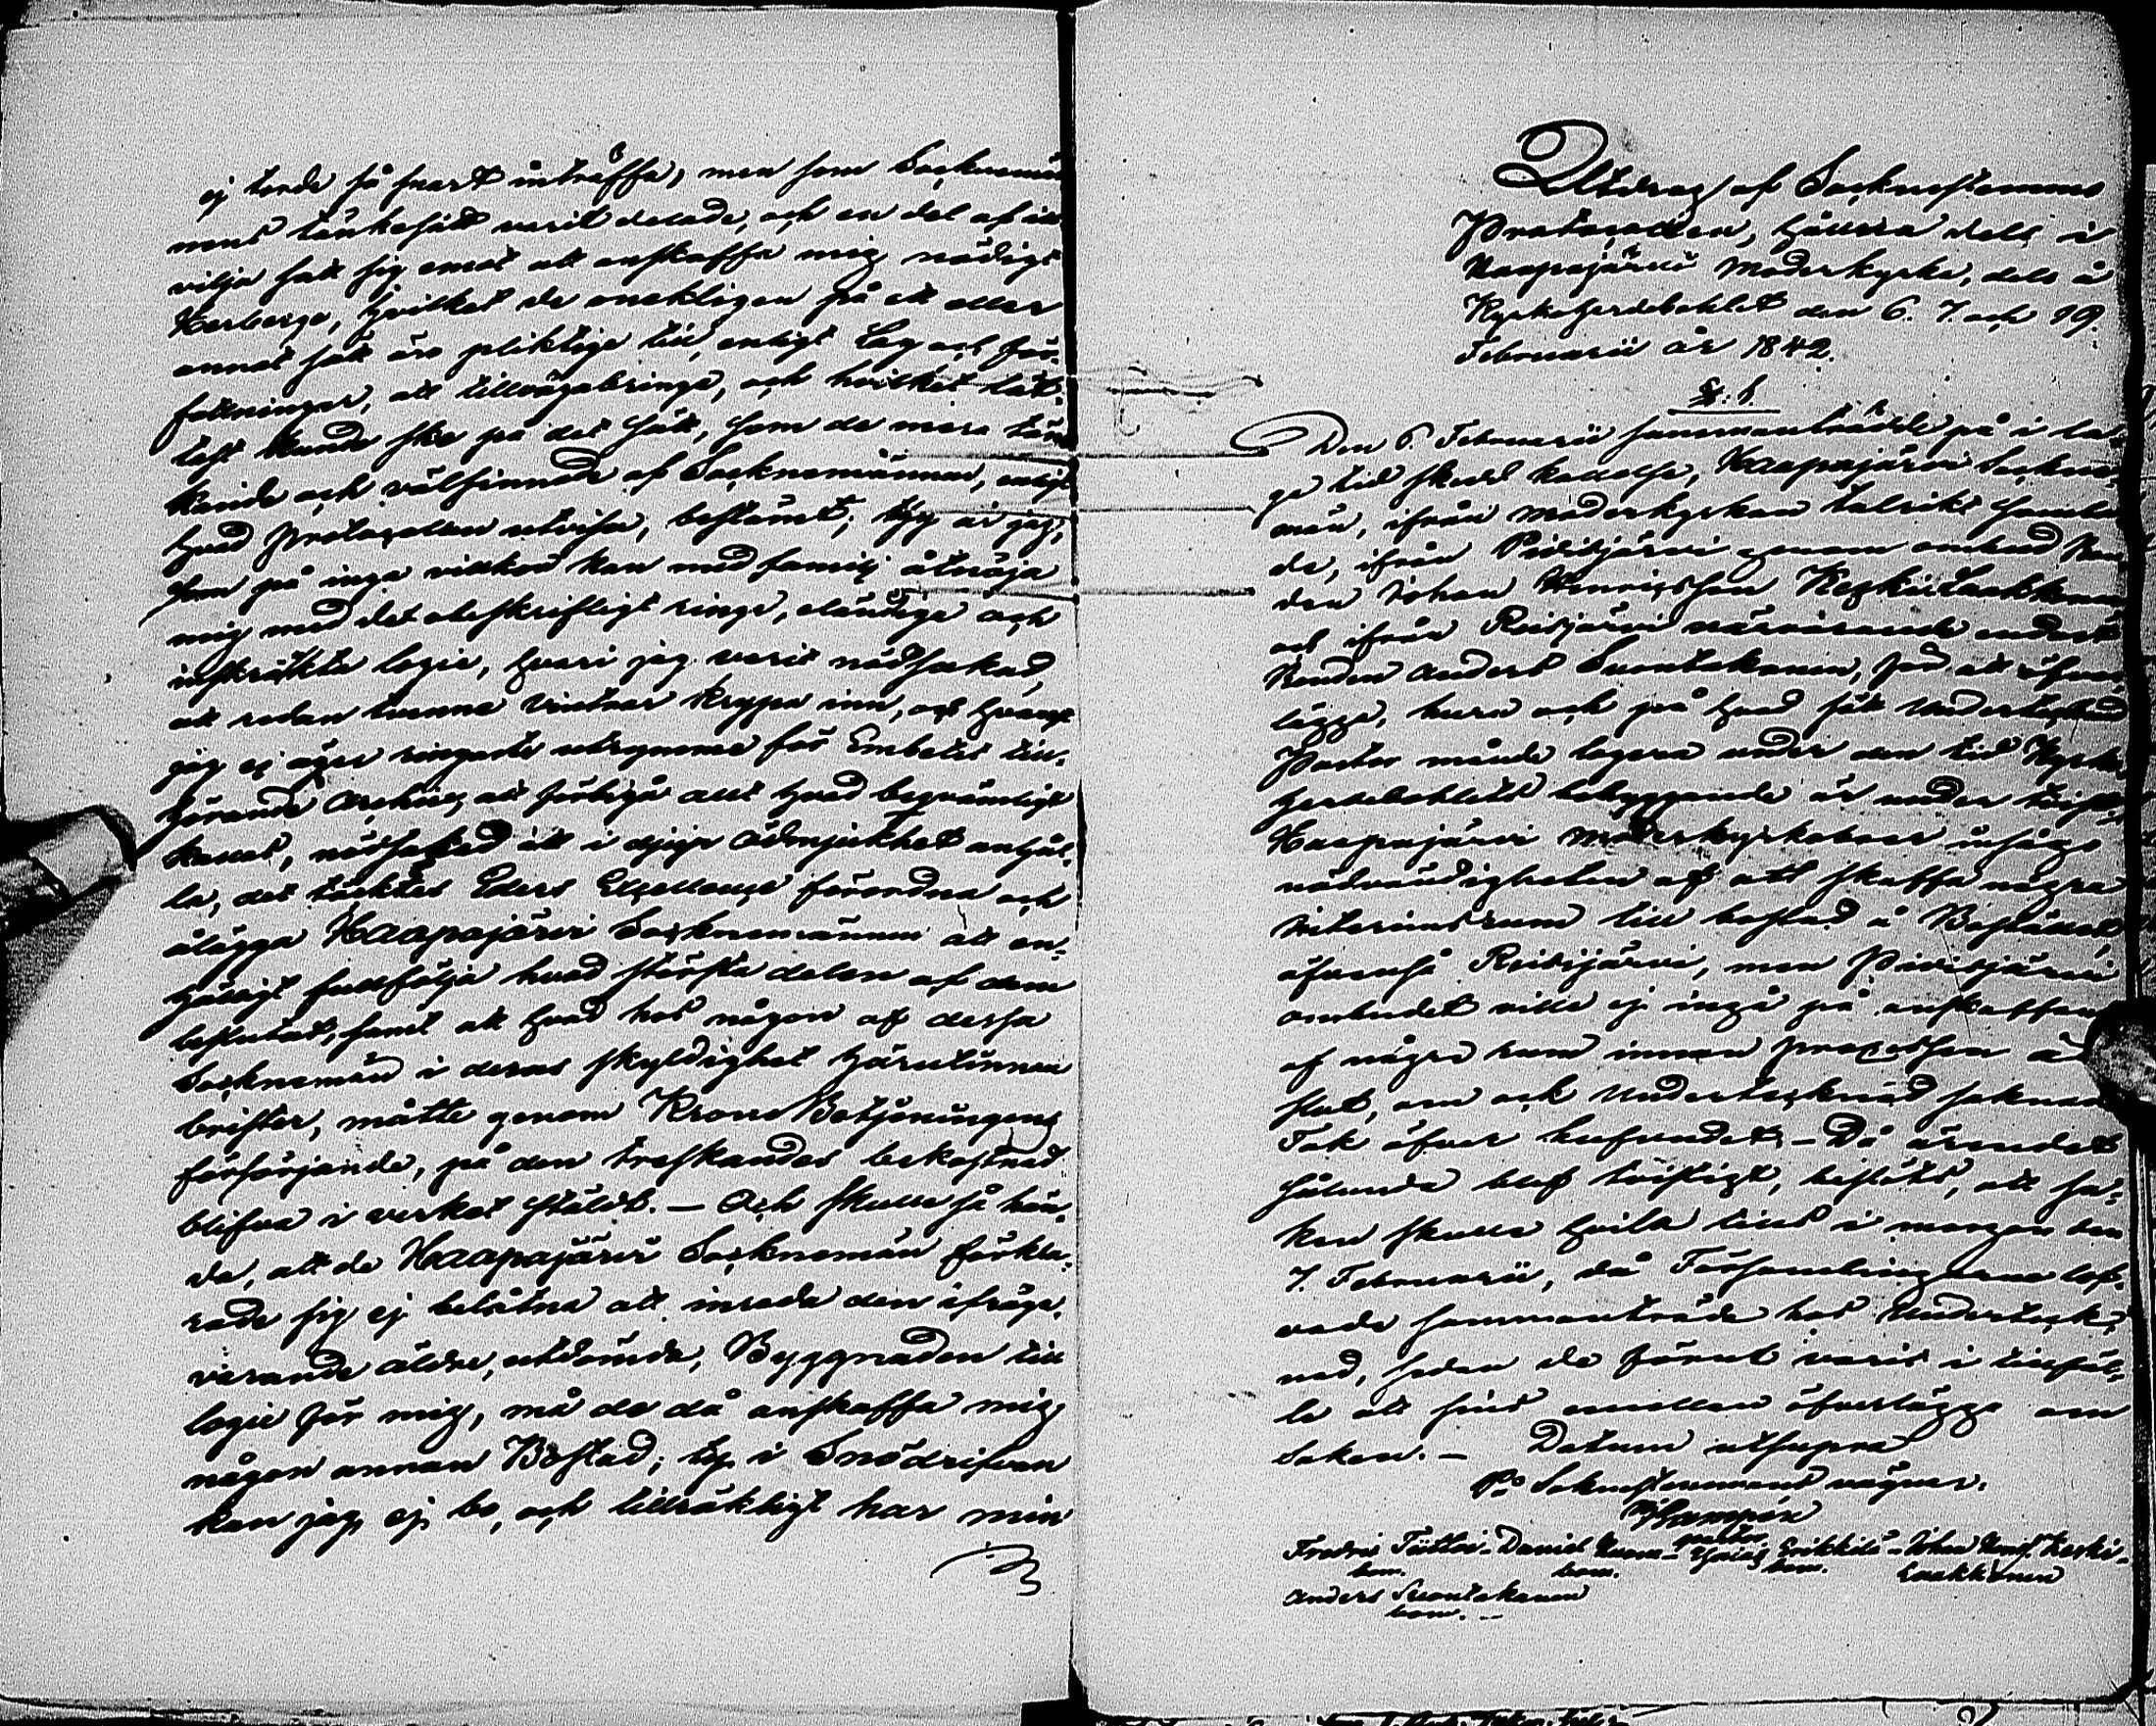 ej torde så snart inträffa, men som Sockenmän-
nens tänkesätt varit delade, och en del af ill
vilja satt sig emot att anskaffa mig nödigt
Herberge, hvilket de onekligen på ett eller
annat sätt äro pliktige till, enligt Lag och för-
fattningar, att tillvägabringa, och hvilket lät-
test kunde ske på det sätt, som de mera tän-
kande och välsinnade af Socknemännen, enligt
hvad Protocolen utvisa, bestämt; ty är jag,
som på inga villkor kan med familj åtnöja
mig med det obeskrifligt ringa, eländiga och
inskränkta logie, hvari jag varit nödsakad,
att redan tvenne Vintrar krypa inn, och hvarest
jag ej äger ringaste utrymme för Embetet till-
hörande Archiv, att förbigå allt hvad beqvämlighet
kallas, nödsakad att i djup ödmjukhet anhål-
la, det täcktes Eders Excellence förordna och
ålägga Haapajärvi Socknemännen att en-
hälligt fullfölja hvad största delen af dem
beslutat, samt att hvad hos någon af dessa
Socknemän i deras skyldighet härutinnan
brister, måtte genom Krono Betjeningens
försörjande, på den treskandes bekostnad
blifva i verket stäldt. — Och skulle så hän-
da, att de Haapajärvi Socknemän förkla-
rade sig ej belåtna att inreda den ifråga-
varande äldre, utdömda, Byggnaden till
logie för mig, må de då anskaffa mig
någon annan Bostad; ty i Snödrifvan
kan jag ej bo, och tillräkligt har min
Utdrag af Socknestemmo
Protocollen, hållna dels i
Haapajärvi Moderkyrka, dels å
Kyrkoherdebohlet den 6. 7. och 19.
Februarii år 1842.
§. 1.
Den 6. Februarii sammanträdde på i la-
ga tid skedd kallelse, Haapajärvi Sockne-
män, ifrån Moderkyrkan talrikt samla-
de, ifrån Pidisjärvi genom ombud Bon-
den Johan Henricsson Keskilaakkonen
och ifrån Reisjärvi närvarande endast
Bonden Anders Suontakanen, för att öfver-
lägga, huru och på hvad sätt Undertecknad
Pastor månde logera under den tid Kyrko-
herdebohlets bebyggande är under tvist.
Haapajärvi Moderkyrkoboer insågo
nödvändigheten af att skaffa några
Interimsrum till bostad å Bostället
äfvenså Reisijärvi, men Pidisjärvi
ombudet ville ej ingå på anskaffan
af några rum innan processen är
slut, om och Undertecknad saknade
Tak öfver hufvudet. — Då ärendet
sålunda blef tvistigt, beslöts, att sa-
ken skulle hvila till i morgon den
7. Februarii, då Församlingarne lof-
vade sammanträda hos Underteck-
nad, sedan de förut varit i tillfäl-
le att sins emellan öfverlägga om
saken. — Datum utsupra
På Soknestemmans vägnar.
Fredric Tuittoi — Daniel — Erikkilä — Johan Henr. Keski-
bom. bom. bom. laakkonen
Anders Suontakanen
bom. —